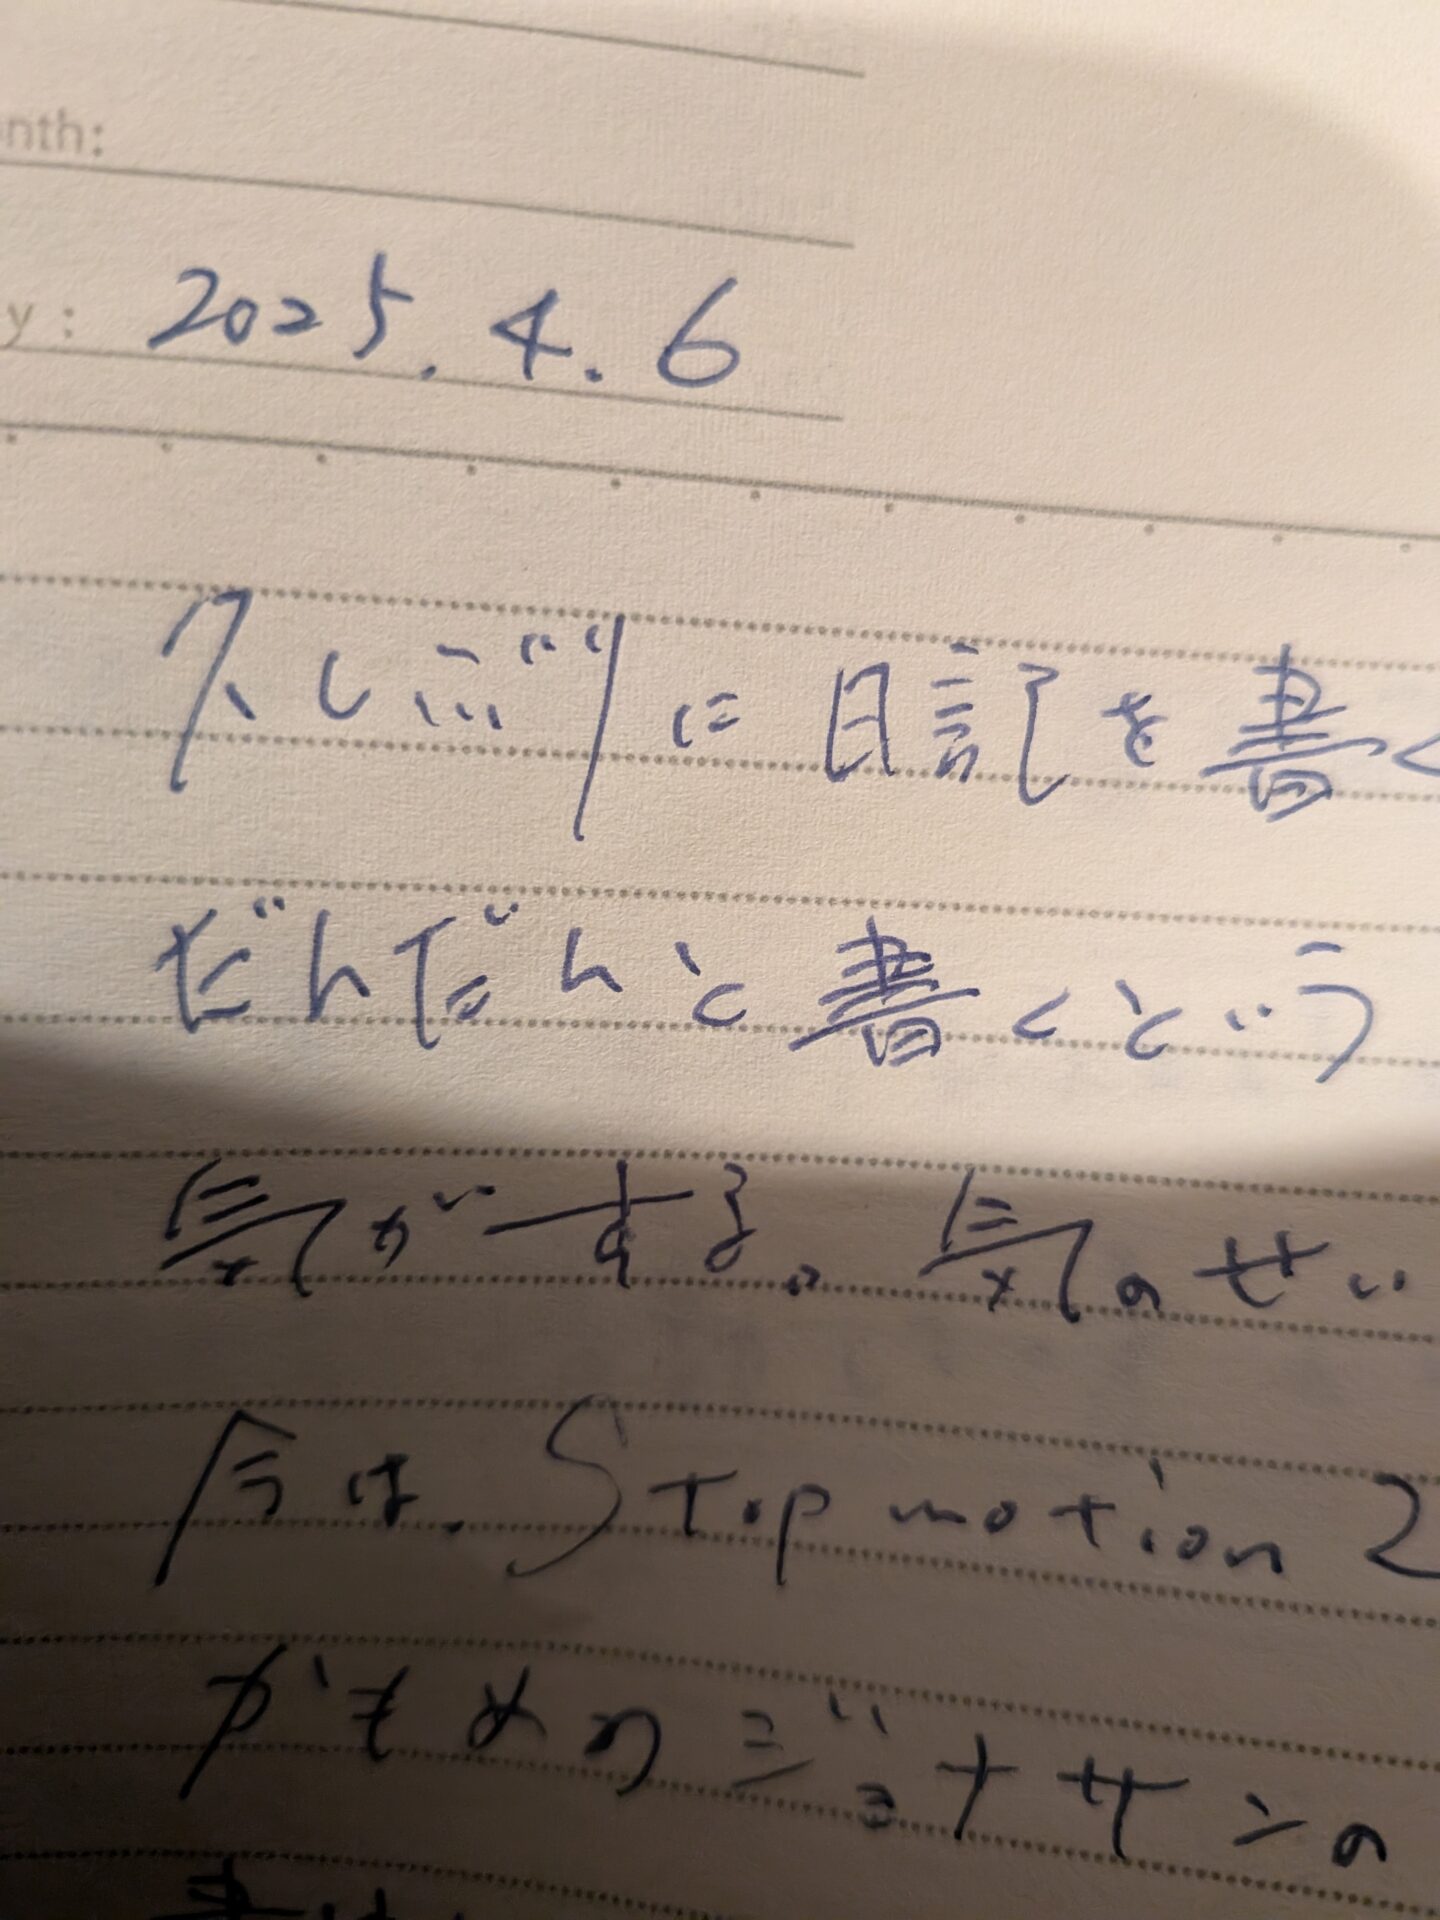 nth:
y: 2025.4.6
久しぶりに日記を書く
だんだんと書くという
気がする。気のせい
今は、Stop motion 2
かもめのジョナサンの